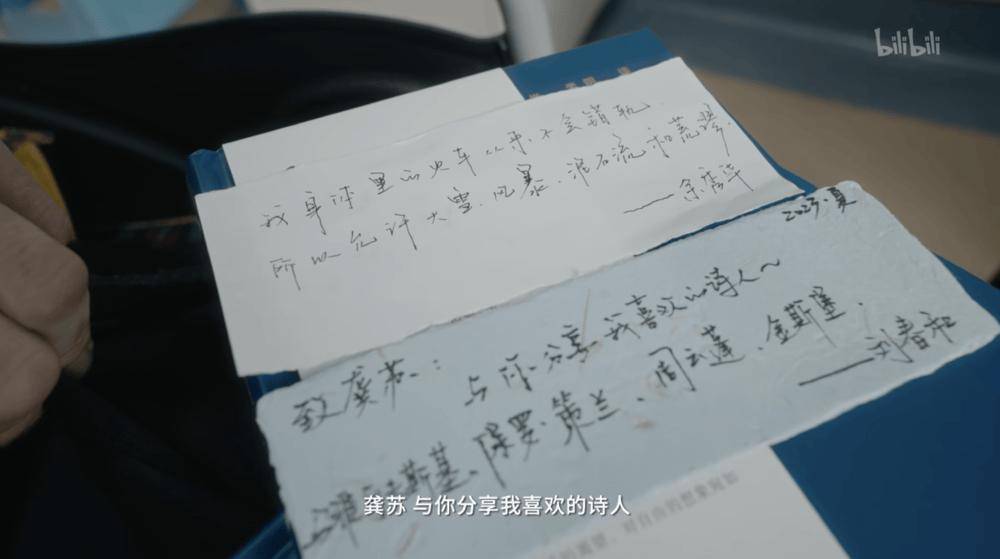 bilibili
我身体里的火车从来不会错轨.
所以允许大雪、风暴、泥石流和荒谬.
——余秀华
2023.夏
致龚苏:
与你分享我喜欢的诗人~
斯基、保罗·策兰、周云蓬、金斯堡.
——刘春和
龚苏 与你分享我喜欢的诗人
对自由的想象宛如